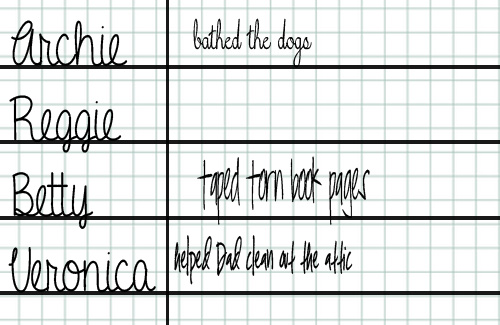 Archie bathed the dogs
Reggie
Betty taped torn book pages
Veronica helped Dad clean out the attic